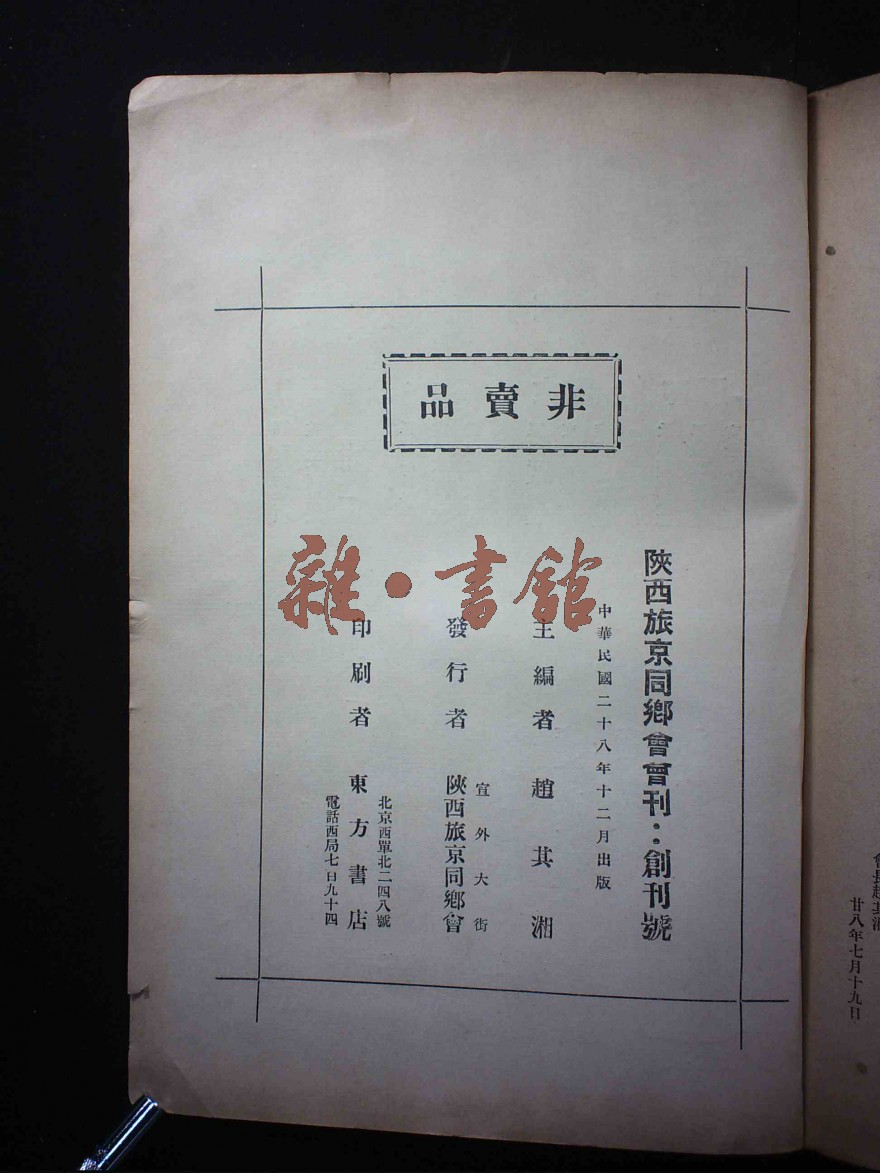 非賣品
陝西旅京同鄉會會刊：創刊號
中華民國二十八年十二月出版
主編者 趙其湘
宣外大街
發行者 陝西旅京同鄉會
北京西單北二四八號
印刷者 東方書店
電話西局七百九十四
雜·書館
會長趙其湘
廿八年七月十九日